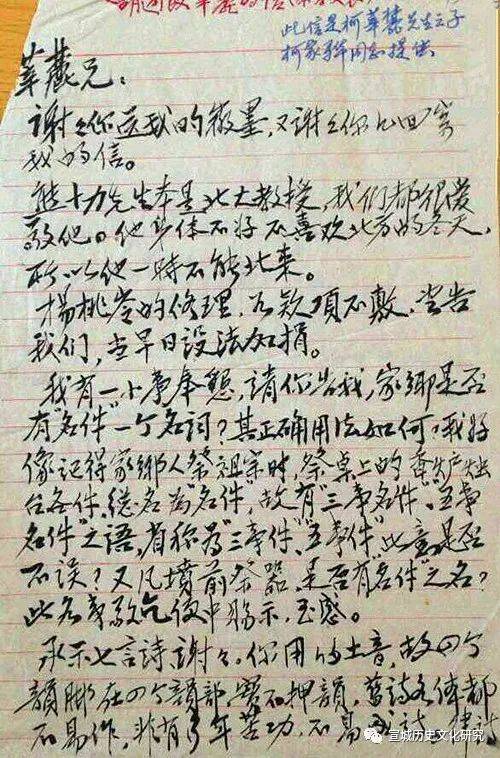 此信是柯莘麓先生之子
柯家骅同志提供
莘麓兄：
謝謝你送我的徽墨，又謝謝你几回寄
我的信。
熊十力先生本是北大教授，我们都很爱
敬他。他身体不好，不喜欢北方的冬天，
所以他一時不能北来。
楊桃岺的修理，如款項不敷，当告
我们，当早日設法加捐。
我有一小事奉懇，請你告我，家鄉是否
有“名件”一个名詞？其正确用法如何？我好
像记得家鄉人祭祖宗时，祭桌上的香炉燭
台各件，総名为“名件”，故有“三事名件”、“五事
名件”之語，省称为“三事件”、“五事件”，此意是否
不误？又凡墳前祭器，是否有“名件”之名？
此名事敬乞便中賜示，至感。
承示七言詩，謝謝。你用的土音，故四个
韻脚在四个韻部，實不押韻，舊詩各体都
不易作，非有多年苦功，不易成詩。律詩
宣城历史文化研究